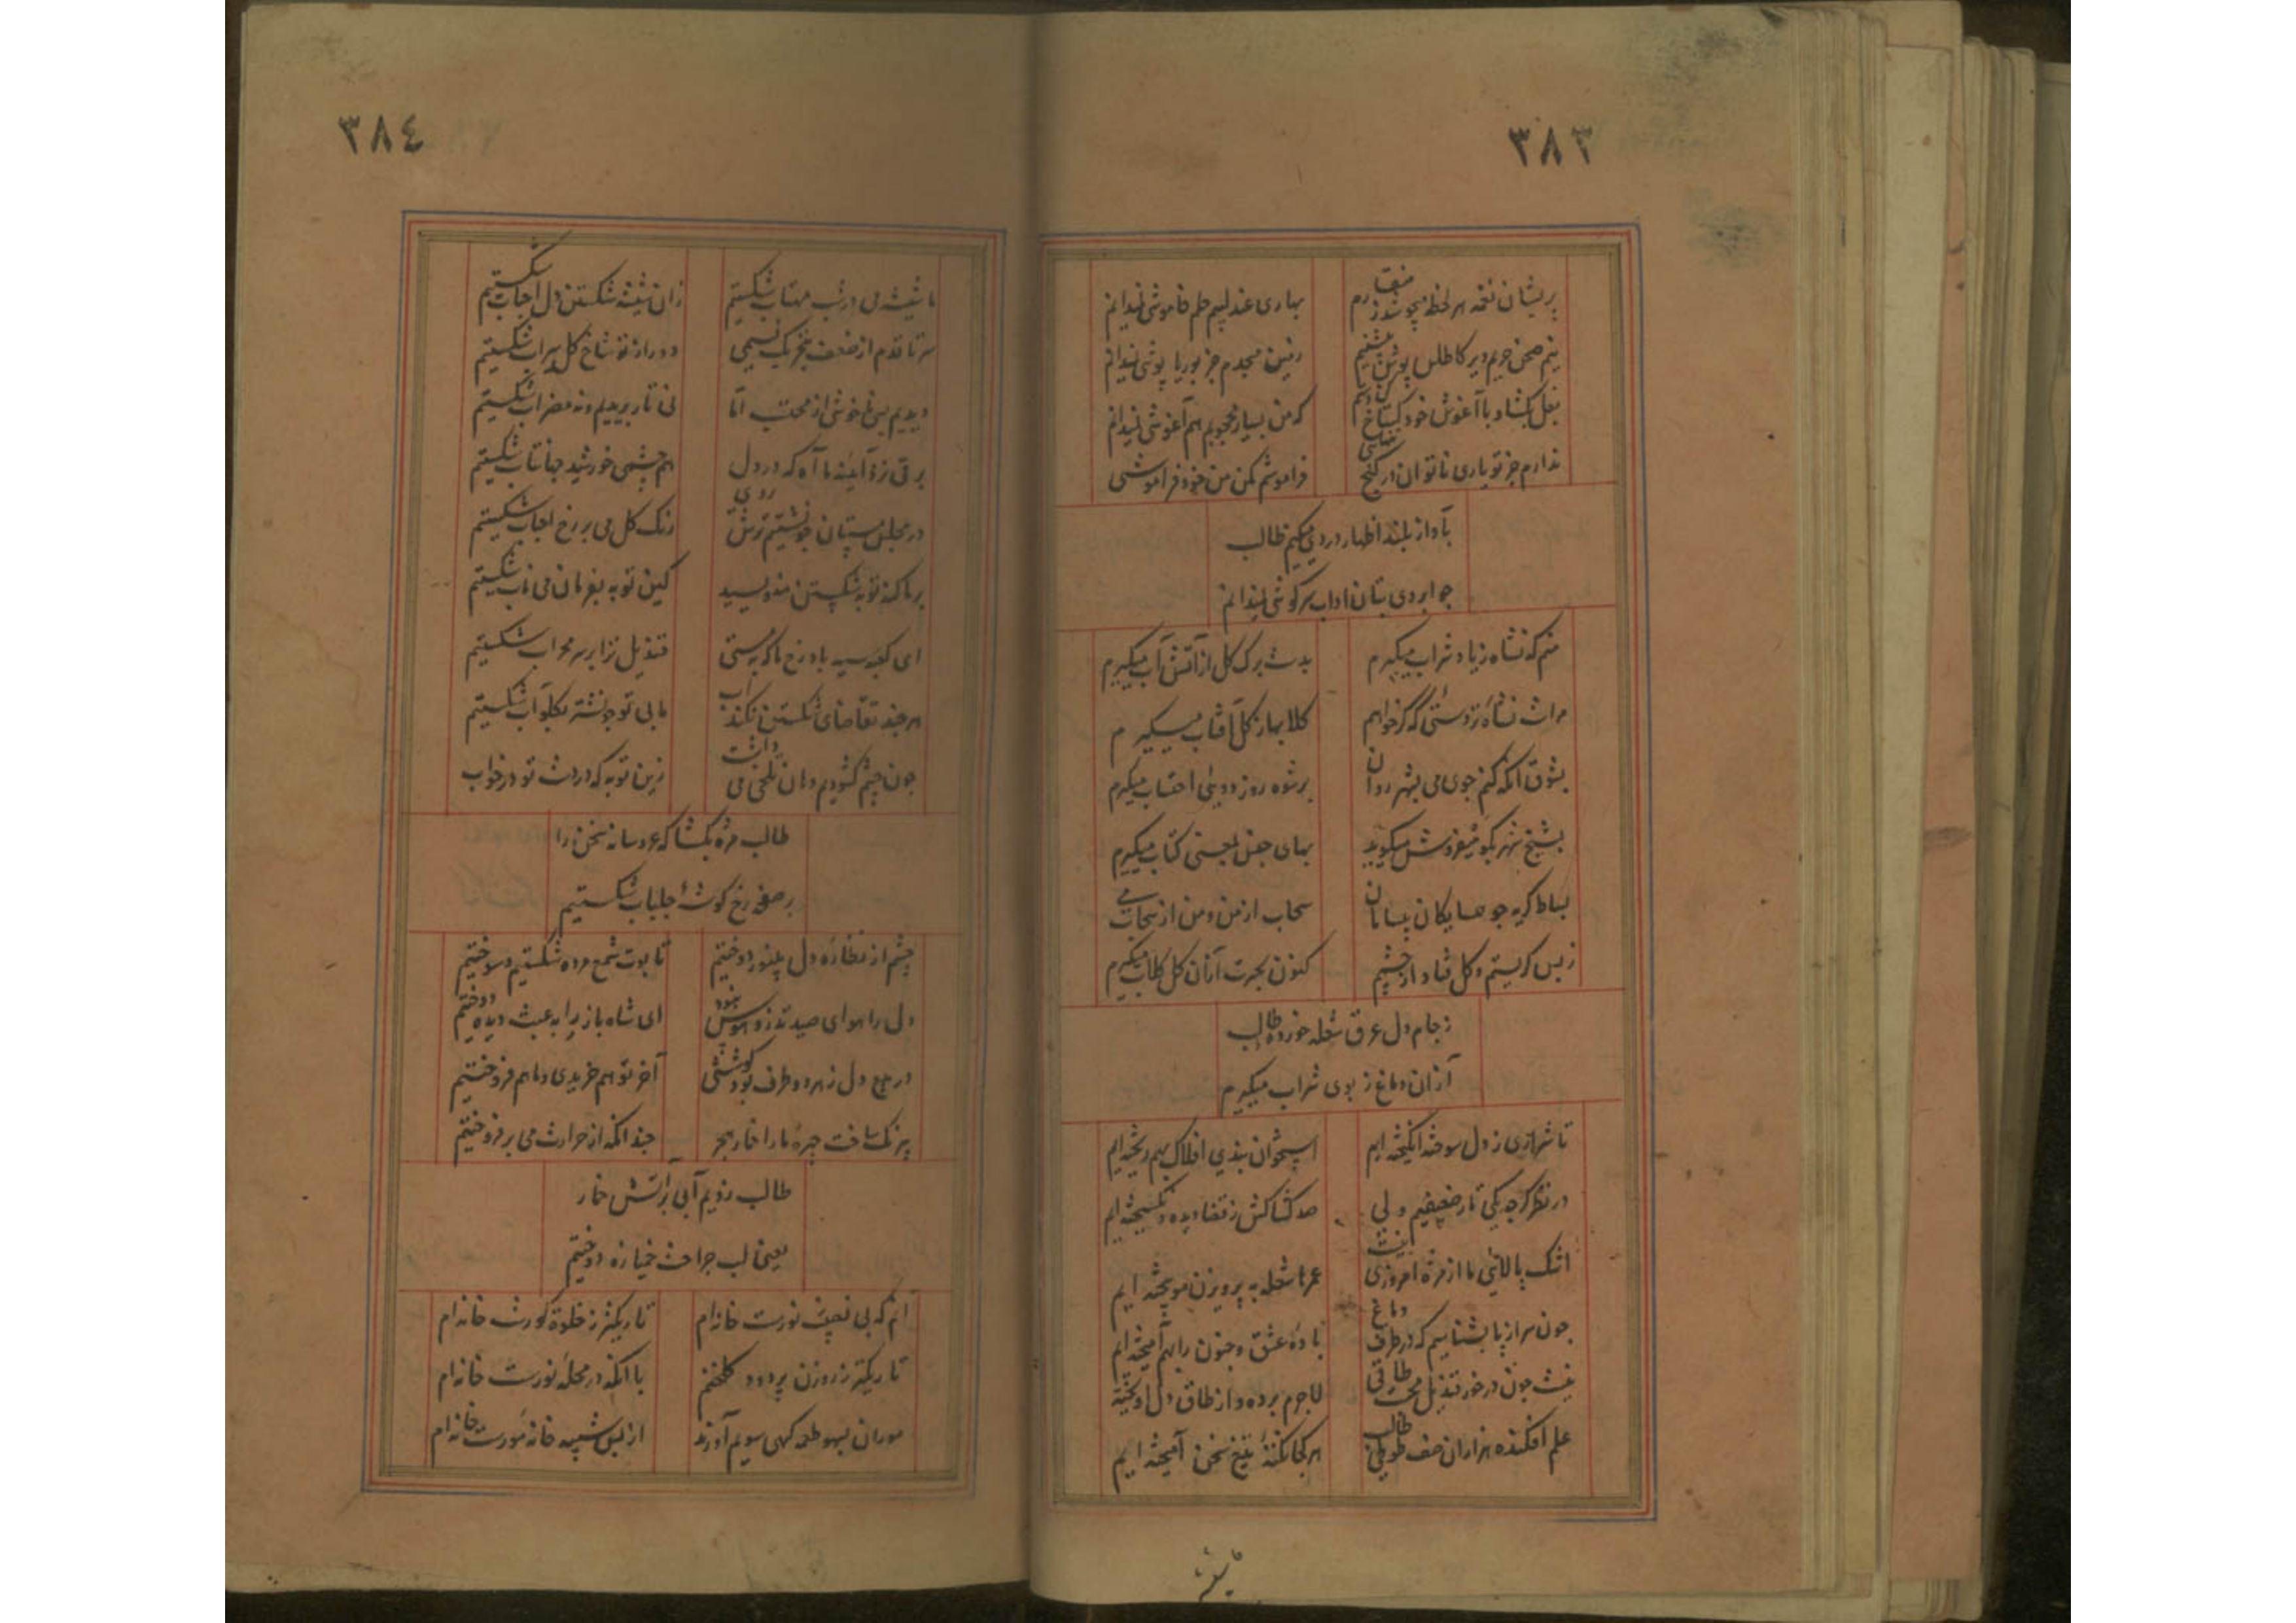 ٣٨٣
پریشان نغمه هر لحظه می جوشد ز منقارم
بهاری عندلیبم حلم خاموشی نمیدانم
نیم صحن حریم دیر کاطلس پوشش
زمین مسجدم جز بوریا پوشی نمیدانم
بغل بگشاد با آغوش خود گستاخ
که من بسیار محجوبم هم آغوشی نمیدانم
ندارم جز تو یاری ناتوان در کنج
فراموشم مکن من خود فراموشی
بآواز بلند اظهار دردی میکنم طالب
جو ابروی بتان اداب سرکوشی نمیدانم
منم که نشاه زیاد شراب میگیرم
بدست برک کل از آتش آب میگیرم
مراست نشاه ز دستی که گر خواهم
کلاب ناز کل آفتاب میگیرم
بشوق انکه کنم جوی می بشهر روان
برشوه روز دویی احتساب میگیرم
بشیخ شهر بکو میفروش میگوید
بهای جنس بجنس کتاب میگیرم
بساط کریه جو همسایکان بسامان
سحاب از من و من از سحاب
زبس کریستم و کل فتاد از چشمم
کنون بجبرت ازان کل کلاب میگیرم
ز جام دل عرق شعله خورده طالب
ازان دماغ ز بوی شراب میگیرم
تا شراری ز دل سوخته انگیخته ایم
استخوان بندی افلاک بهم ریخته ایم
در نظر کرچه یکی تار ضعیفیم ولی
صد کشاکش ز قضا دیده و نکسیخته ایم
اشک پالائی ما از مژه امروزی نیست
عمرها شعله به پرویزن مو بیخته ایم
جون سر از پا بشناسیم که در ظرف دماغ
باده عشق و جنون را بهم آمیخته ایم
نیست جون در خور قندیل محبت طاقی
لاجرم برده و از طاق دل اویخته
علم افکنده هزاران صف طالب
هر کجا تیغ سخن آمیخته ایم
٣٨٤
ما شیشه می در شب مهتاب شکستیم
زان شیشه شکستن دل احباب شکستیم
سر تا قدم از ضعف بتحریک نسیمی
دور از تو شاخ کل سیراب شکستیم
دیدیم بسی ناخوشی از محتسب اما
نی تار بریدیم و نه مضراب شکستیم
برقی زد آئینه ما آه که در دل
هم چشمی خورشید جهانتاب شکستیم
در مجلس مستان جو نشستیم ترش روی
رنک کل می بر رخ احباب شکستیم
بر ما کنه توبه شکستن منویسید
کین توبه بفرمان می ناب شکستیم
ای کعبه سیه باد رخ ما که به مستی
قندیل ترا بر سر محراب شکستیم
هر جند تقاضای شکستن نکند آب
ما بی تو جو نشتر بکلو آب شکستیم
جون چشم کشودیم دهان تلخی می داشت
زین توبه که در دست تو در خواب
طالب مژه بکشا که عروسان سخن را
بر صفحه رخ کوشه جلباب شکستیم
چشم از نظاره دل پلنور دوختیم
تابوت شمع مرده شکستیم و سوختیم
دل را هوای صید تذرو هوس نبود
ای شاه باز دیده را به عبث دوختیم
در بیع دل ز هر دو طرف بود کوششی
آخر تو هم خریدی و ما هم فروختیم
بیرنک ساخت چهره ما را خمار هجر
جندانکه از حرارت می بر فروختیم
طالب زدیم آبی بر آتش خمار
یعنی لب جراحت خمیازه دوختیم
انم که بی نصیب نورست خانه ام
تاریکتر ز خلوة کورست خانه ام
تاریکتر ز روزن پر دود کلخنم
با انکه در محله نورست خانه ام
موران بسهو طعمه کهی سویم آورند
از بس شبیه خانه مورست خانه ام